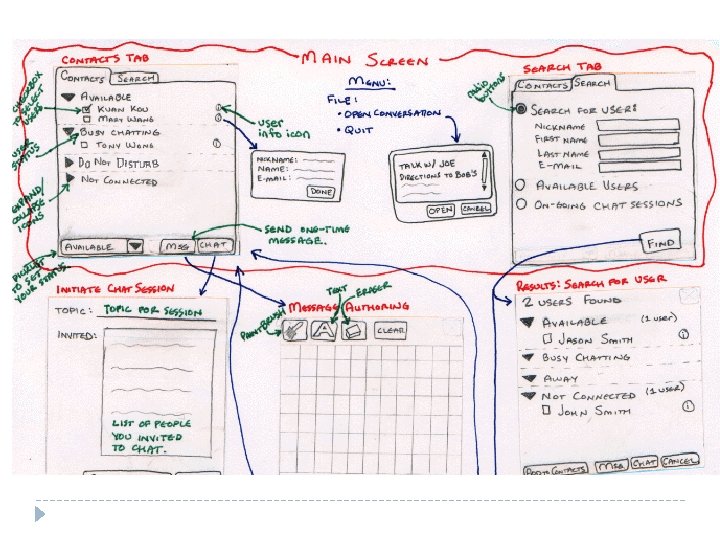 MAIN SCREEN
CONTACTS TAB
CONTACTS SEARCH
AVAILABLE
KUAN KOU
MARY WANG
BUSY CHATTING
TONY WONG
DO NOT DISTURB
NOT CONNECTED
AVAILABLE
MSG CHAT
CHECKBOX
TO SELECT
USER
USER
STATUS
EXPAND/
COLLAPSE
ICONS
PICKLIST
TO SET
YOUR STATUS
USER
INFO ICON
NICKNAME:
NAME:
E-MAIL:
DONE
SEND ONE-TIME
MESSAGE.
MENU:
FILE:
• OPEN CONVERSATION
• QUIT
TALK W/ JOE
DIRECTIONS TO BOB'S
OPEN CANCEL
SEARCH TAB
RADIO
BUTTONS
CONTACTS SEARCH
SEARCH FOR USER:
NICKNAME
FIRST NAME
LAST NAME
E-MAIL
AVAILABLE USERS
ON-GOING CHAT SESSIONS
FIND
INITIATE CHAT SESSION
TOPIC: TOPIC FOR SESSION
INVITED:
LIST OF PEOPLE
YOU INVITED
TO CHAT.
MESSAGE AUTHORING
PAINTBRUSH
TEXT
ERASER
A
CLEAR
RESULTS: SEARCH FOR USER
2 USERS FOUND
AVAILABLE (1 USER)
JASON SMITH
BUSY CHATTING
AWAY
NOT CONNECTED (1 USER)
JOHN SMITH
ADD TO CONTACTS MSG CHAT CANCEL